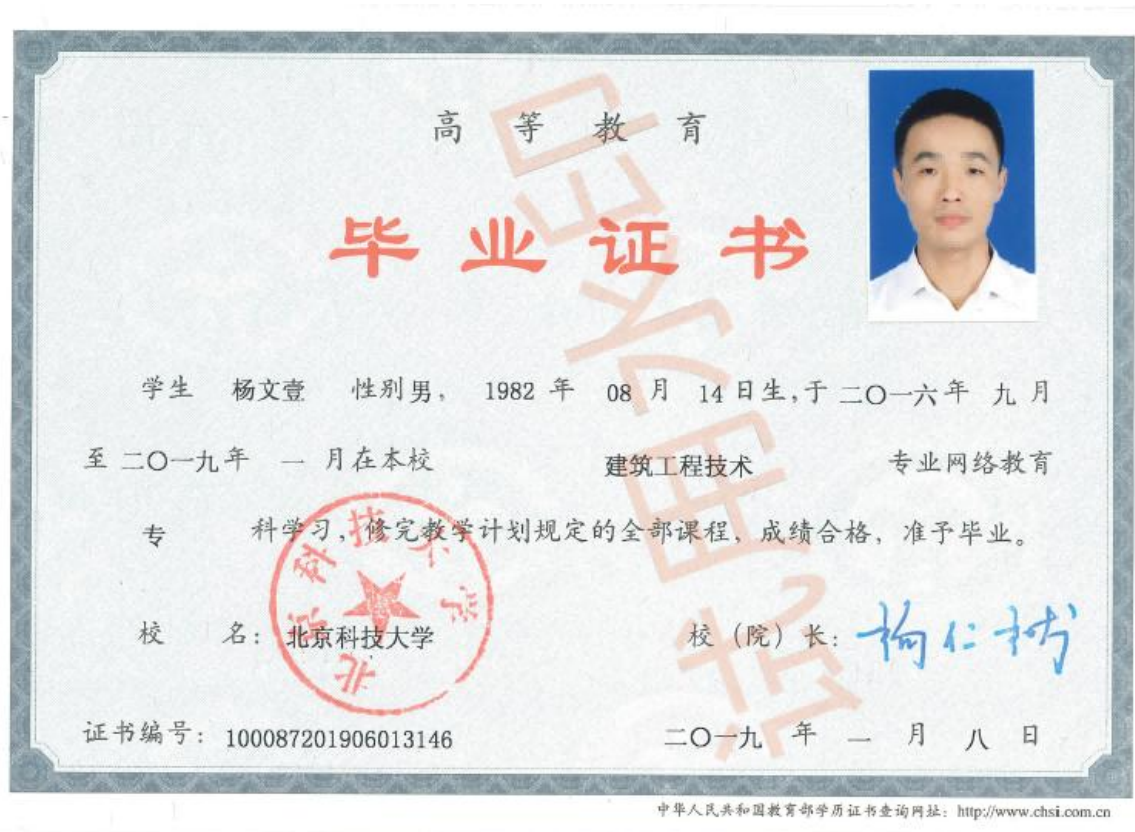 高等教育
毕业证书
学生 杨文壹 性别男，1982 年 08 月 14 日生，于二〇一六年 九月
至二〇一九年 一 月在本校 建筑工程技术 专业网络教育
专 科学习，修完教学计划规定的全部课程，成绩合格，准予毕业。
校 名：北京科技大学
校（院）长：杨仁树
北京科技大学
证书编号：100087201906013146
二〇一九 年 一 月 八 日
中华人民共和国教育部学历证书查询网址：http://www.chsi.com.cn
试用水印